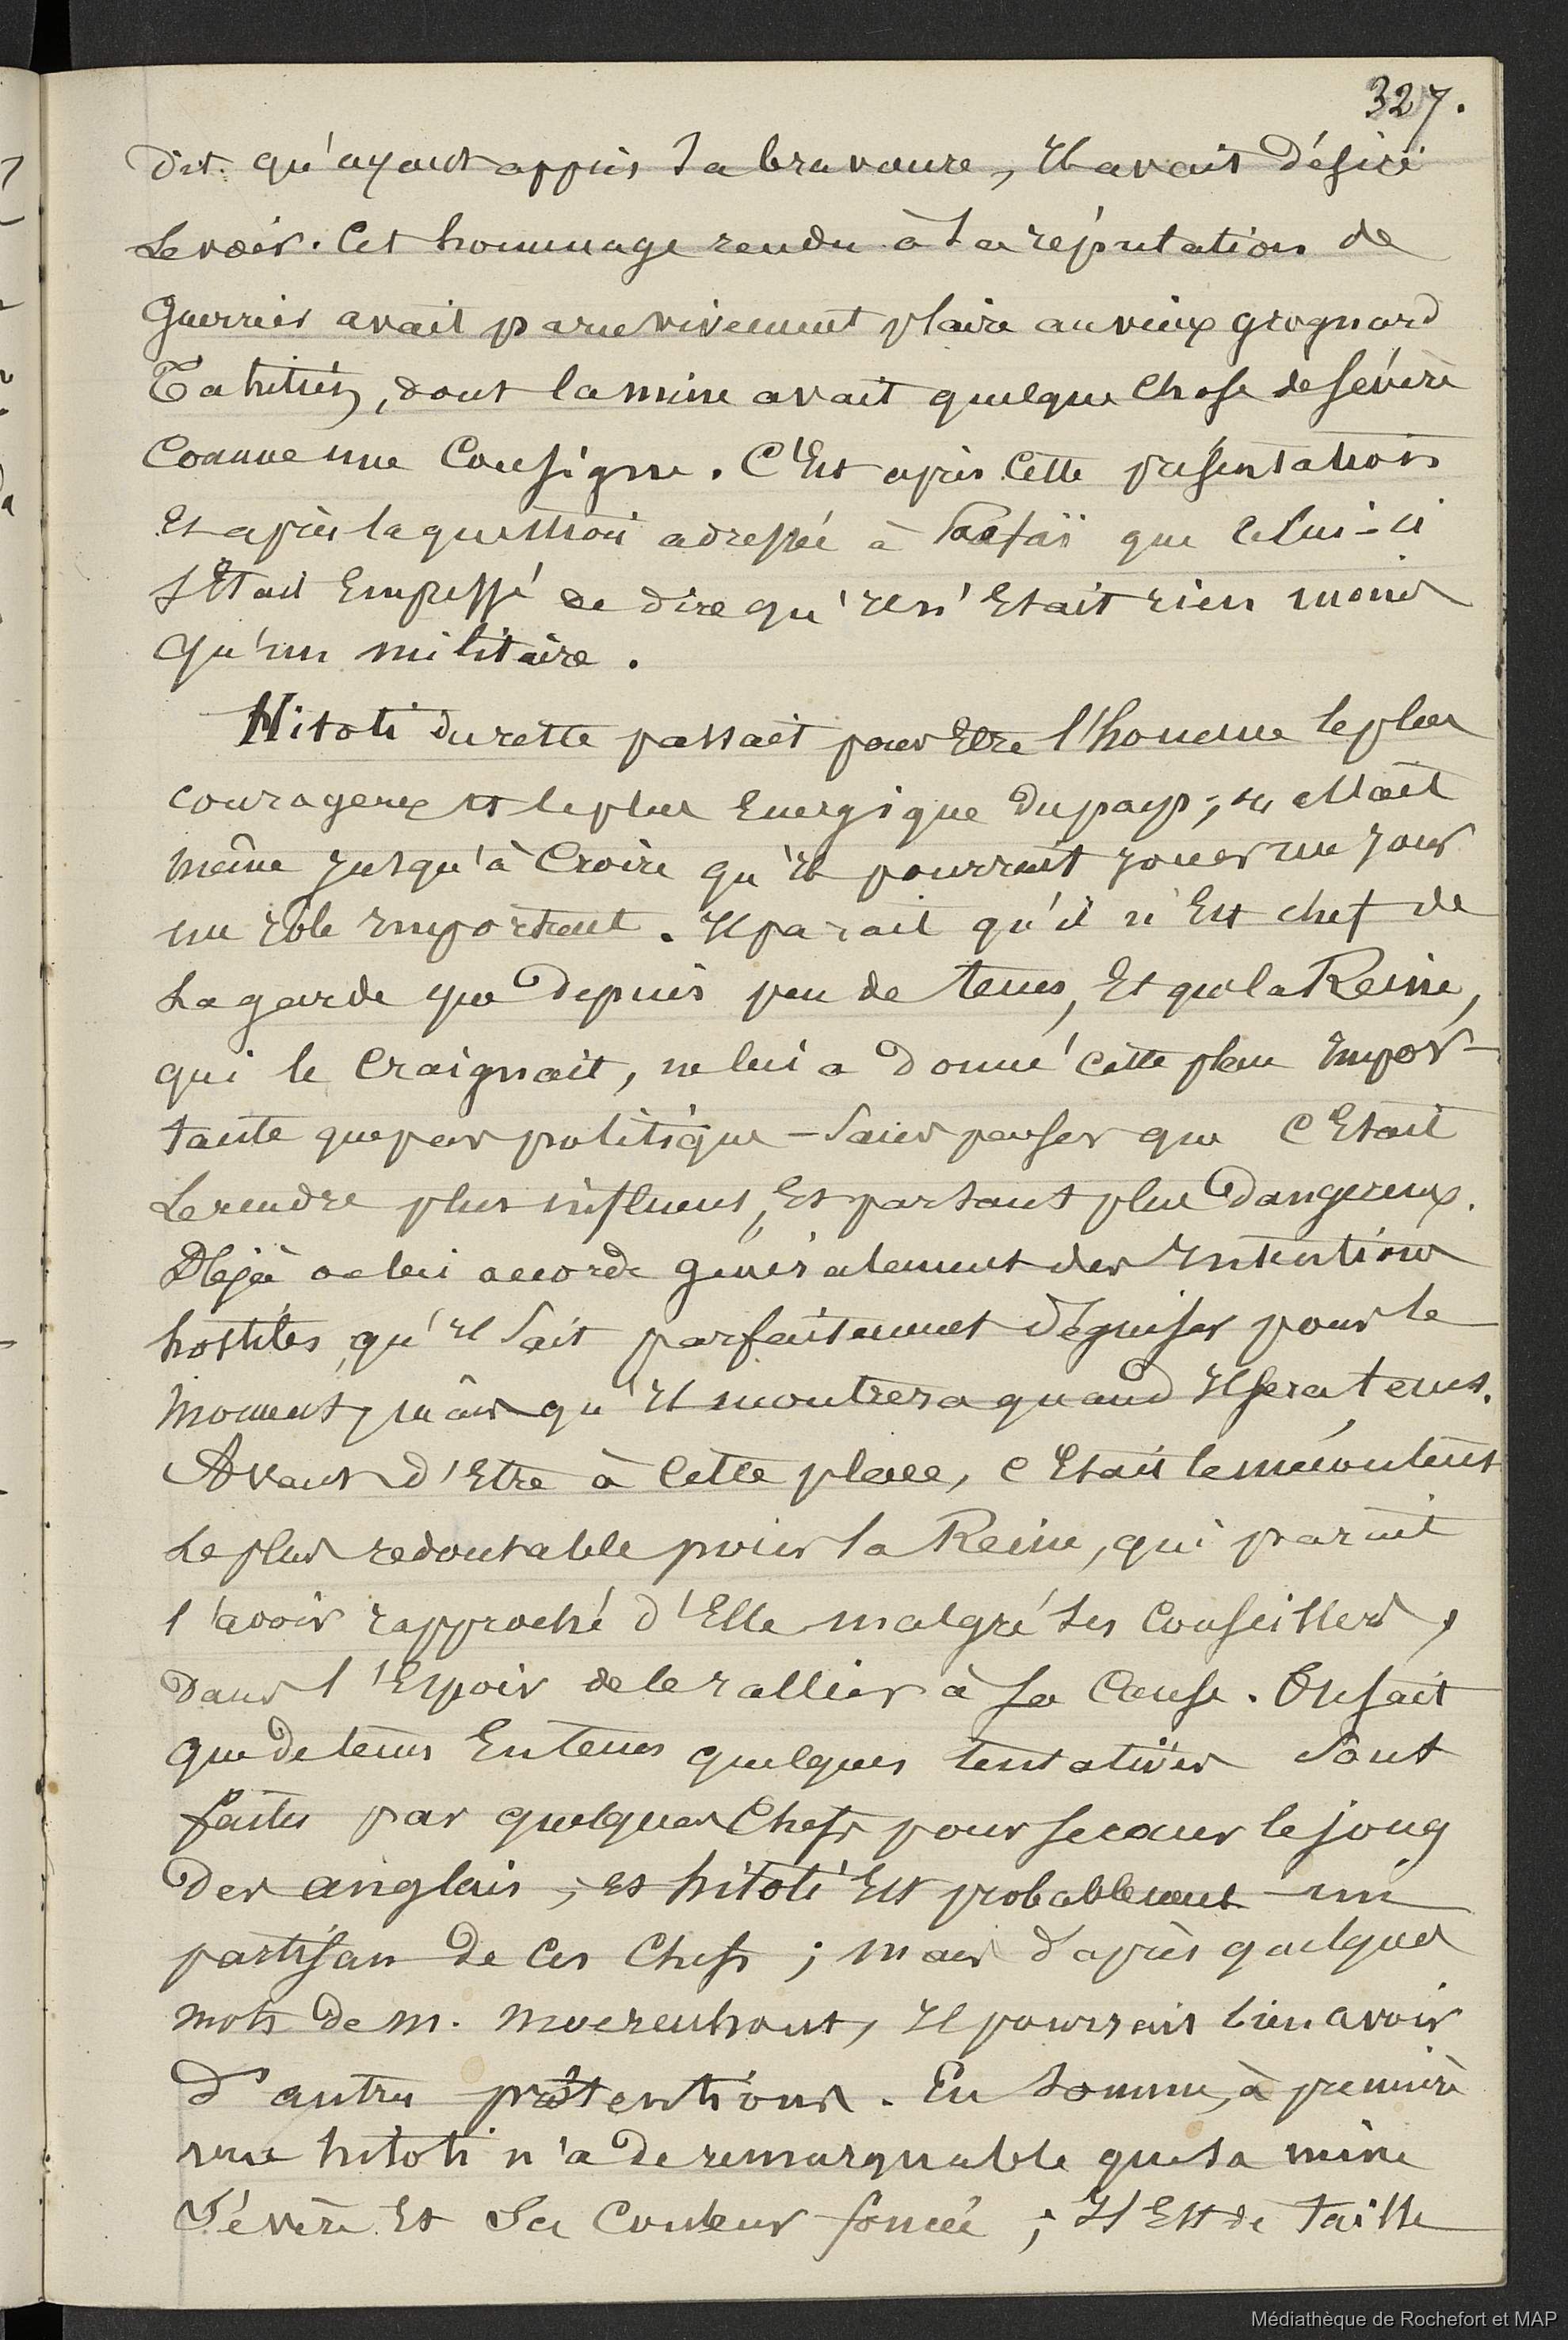 327.
dit qu'ayant appris sa bravoure, Il avait désiré
le voir. Cet hommage rendu à sa réputation de
guerrier avait parue vivement plaire au vieux grognard
Tahitien, dont la mine avait quelque chose de sévère
comme une consigne. C'Est après cette présentation
Et après la question adressée à que celui-ci
s'Etait Empressé de dire qu'Il n'Etait rien moins
qu'un militaire.
Hitoti du reste passait pour Etre l'homme le plus
courageux et le plus Energique du pays; on allait
même jusqu'à croire qu'Il pourrait jouer un jour
un rôle Important. Il parait qu'il n'Est chef de
la garde que depuis peu de tems, Et que la Reine,
qui le craignait, ne lui a donné cette place Impor-
tante que par politique – sans penser que c'Etait
le rendre plus influent, Et partant plus dangereux.
Déjà on lui accorde généralement des Intentions
hostiles, qu'Il sait parfaitement déguiser pour le
moment, mais qu'Il montrera quand Il sera tems.
Avant d'Etre à cette place, c'Etait le mécontent
le plus redoutable pour la Reine, qui parait
l'avoir rapproché d'Elle malgré ses conseillers,
dans l'Espoir de le rallier à sa cause. On sait
que de tems En tems quelques tentatives sont
faites par quelques chefs pour secouer le joug
des anglais; et hitoti Est probablement un
partisan de ces chefs; mais d'après quelques
mots de m. moerenhout, Il pourrait bien avoir
d'autres prétentions. En somme, à première
vue hitoti n'a de remarquable que sa mine
sévère Et sa couleur foncée; Il Est de taille
Médiathèque de Rochefort et MAP